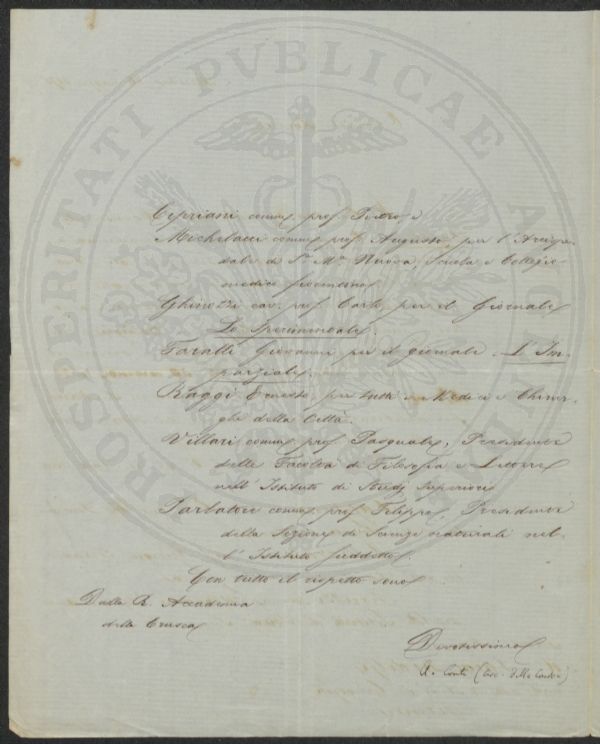 PROSPERITATI PVBLICAE AVGENDAE
Cipriani comm. prof. Pietro e
Michelacci comm. prof. Augusto, per l'Arcispe-
dale di S.ta M.a Nuova, Scuola e Collegio
medico fiorentino
Ghinozzi cav. prof. Carlo, per il Giornale
Lo Sperimentale.
Faralli Giovanni per il giornale L'Im-
parziale.
Raggi Ernesto, per tutti i Medici e Chirur-
ghi della Città.
Villari comm. prof. Pasquale, Presidente
della Facoltà di Filosofia e Lettere
nell'Istituto di Studj Superiori
Parlatore comm. prof. Filippo, Presidente
della Sezione di Scienze naturali nel-
l'Istituto suddetto.
Con tutto il rispetto sono
Dalla R. Accademia
della Crusca
Devotissimo
A. Conti